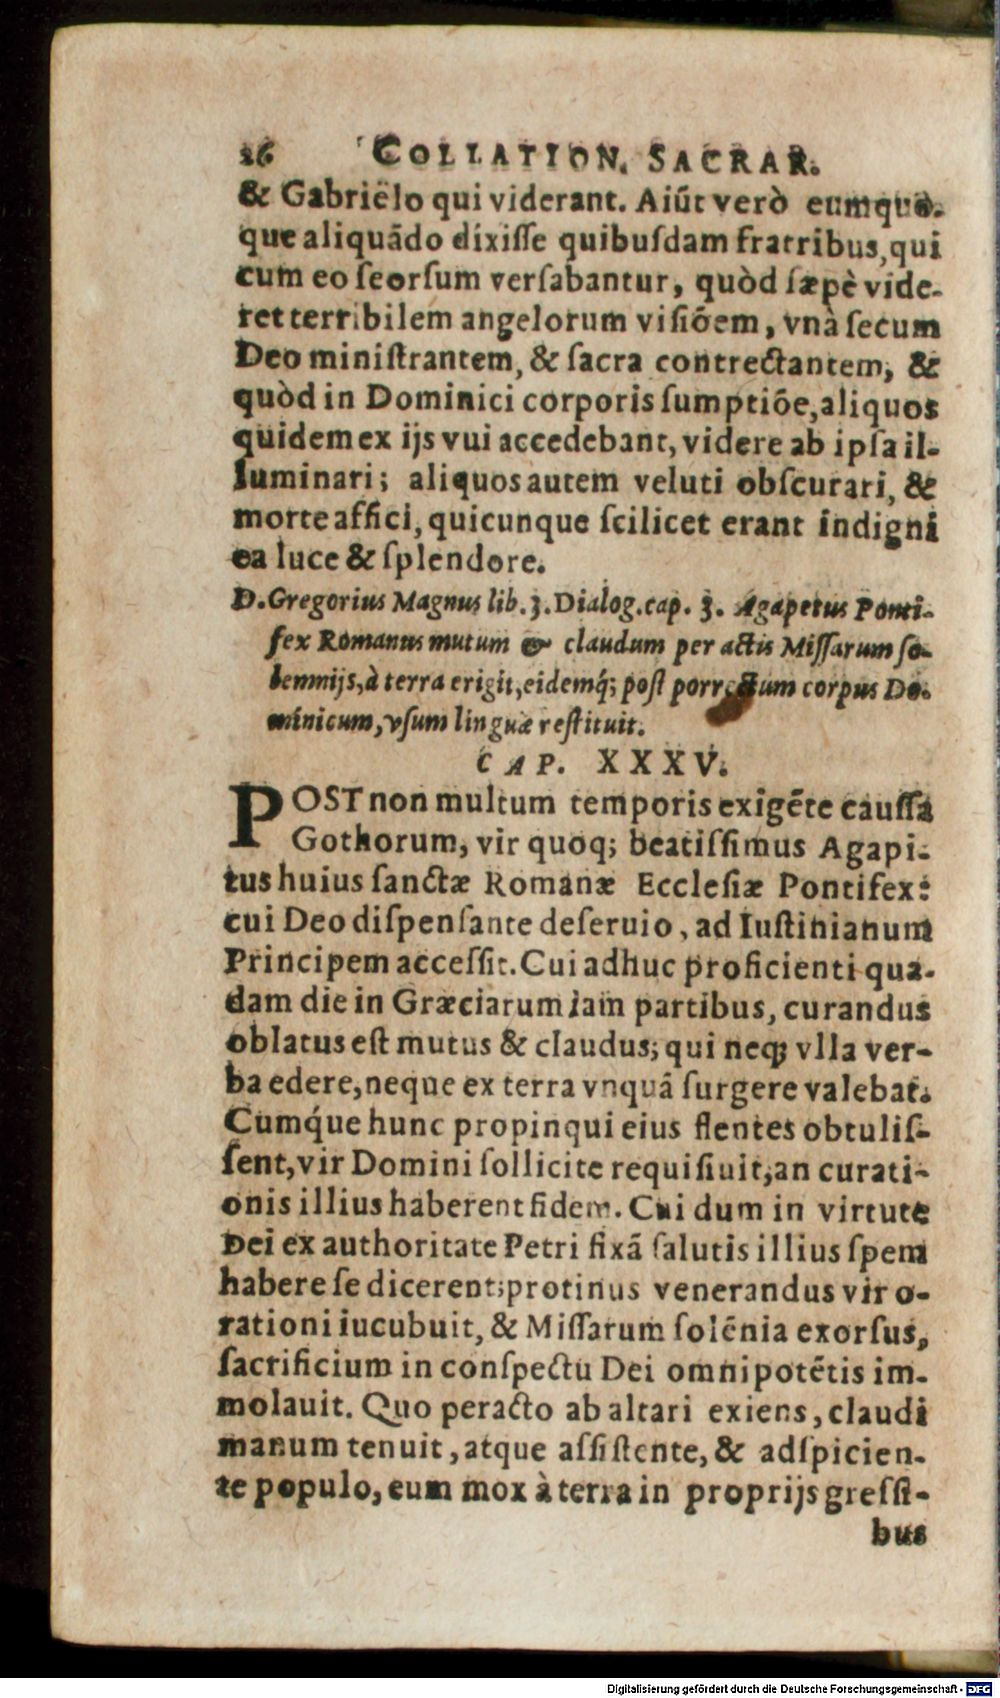 26 COLLATION. SACRAR.
& Gabriēlo qui viderant. Aiūt verò eumquo-
que aliquādo dixiſſe quibuſdam fratribus, qui
cum eo ſeorſum verſabantur, quòd ſæpè vide-
ret terribilem angelorum viſiōem, vnà ſecum
Deo miniſtrantem, & ſacra contrectantem, &
quòd in Dominici corporis ſumptiōe, aliquos
quidem ex ijs vui accedebant, videre ab ipſa il-
luminari; aliquos autem veluti obſcurari, &
morte affici, quicunque ſcilicet erant indigni
ea luce & ſplendore.
D. Gregorius Magnus lib. 3. Dialog. cap. 3. Agapetus Ponti-
fex Romanus mutum & claudum per actis Miſſarum ſo-
lemnijs, à terra erigit, eidemq́; poſt porrectum corpus Do-
minicum, vſum linguæ reſtituit.
CAP. XXXV.
POST non multum temporis exigēte cauſſa
Gothorum, vir quoq; beatiſſimus Agapi-
tus huius ſanctæ Romanæ Eccleſiæ Pontifex:
cui Deo diſpenſante deſeruio, ad Iuſtinianum
Principem acceſſit. Cui adhuc proficienti qua-
dam die in Græciarum iam partibus, curandus
oblatus eſt mutus & claudus; qui neq; vlla ver-
ba edere, neque ex terra vnquā ſurgere valebat.
Cumq́ue hunc propinqui eius flentes obtuliſ-
ſent, vir Domini ſollicite requiſiuit, an curati-
onis illius haberent fidem. Cui dum in virtute
Dei ex authoritate Petri fixā ſalutis illius ſpem
habere ſe dicerent; protinus venerandus vir o-
rationi iucubuit, & Miſſarum ſolēnia exorſus,
ſacrificium in conſpectu Dei omnipotētis im-
molauit. Quo peracto ab altari exiens, claudi
manum tenuit, atque aſſiſtente, & adſpicien-
te populo, eum mox à terra in proprijs greſſi-
bus
Digitalisierung gefördert durch die Deutsche Forschungsgemeinschaft - DFG